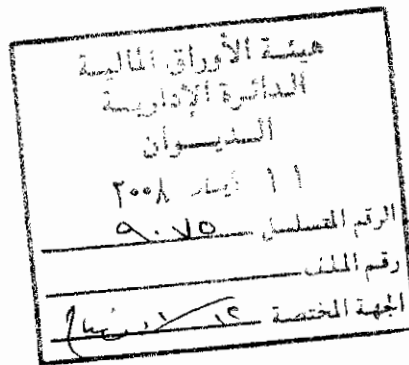 هيئة الأوراق المالية
الدائرة الإدارية
الديوان
١١ أيار ٢٠٠٨
الرقم المتسلسل ٩٠٧٥
رقم الملف
الجهة المختصة